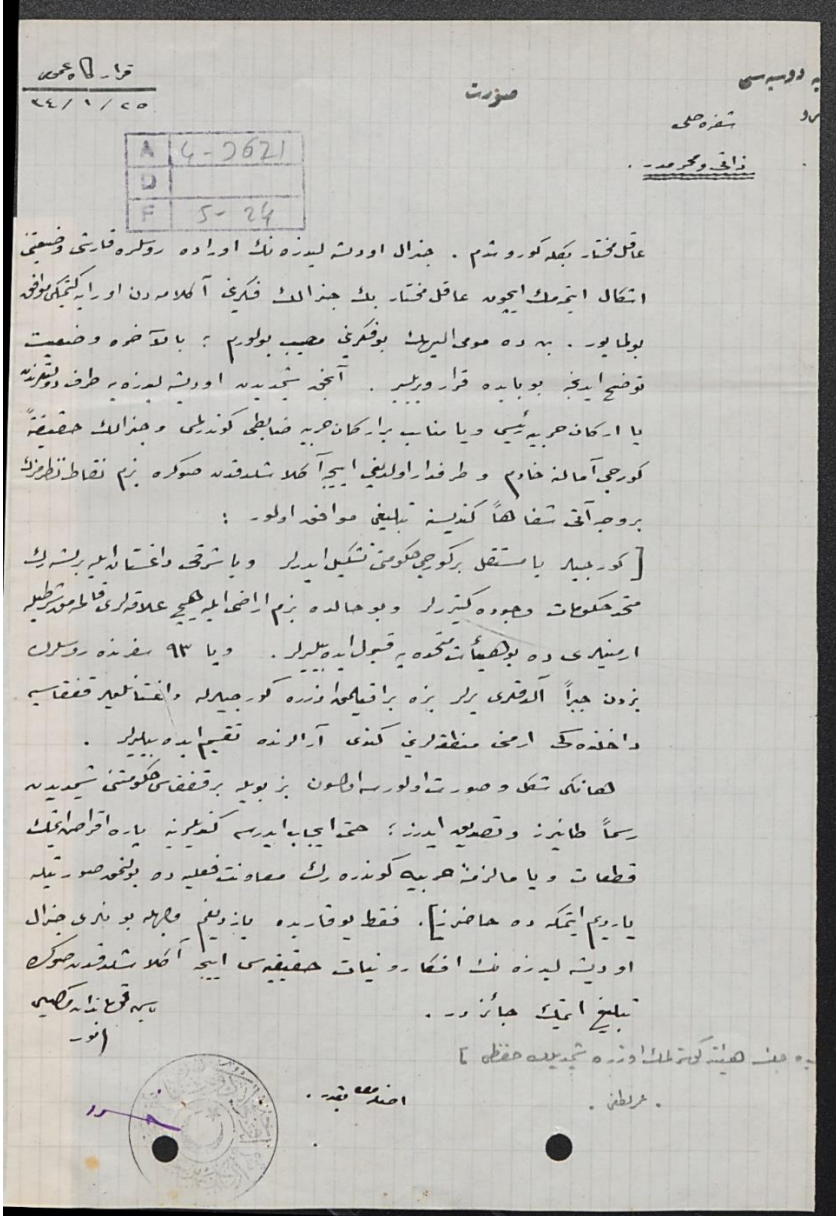 قرارگاه عمومی
٣٤/١/٢٥
صورت
شفره حلی
ذاتی و محرمدر .
A 4-3671
D
F 5-24
عاقل مختار بكله كوروشدم . جنرال اوديشه ليدزه نك اوراده روسلره قارشی وضعیتی
اشكال ایتمك ایچون عاقل مختار بك جنرالك فكرینی آكلامه دن اورایه كیتمكی موافق
بولمایور . بن ده مومی الیهك بو فكرینی مصیب بولورم ؛ بالآخره وضعیت
توضح ایدنجه بو بابده قرار ویریلیر . آنجق شیمدیدن اوديشه ليدزه یه طرف دولتلرندن
یا اركان حربیه رئیسی ویا مناسب بر اركان حربیه ضابطی كوندرلملی و جنرالك حقیقةً
كورجی آمالنه خادم و طرفدار اولدیغی اییجه آكلاشلدقدن صوكره بزم نقاط نظرمزك
بروجه آتی شفاهاً كندیسنه تبلیغی موافق اولور :
[ كورجیلر یا مستقل بر كورجی حكومتی تشكیل ایدرلر ویا شرقی داغستان ایله برلشه رك
متحد حكومات وجوده كتیررلر و بو حالده بزم اراضی ایله هیچ علاقه لری قالمه مق شرطیله
ارمنیلری ده بو هیئات متحده یه قبول ایده بیلیرلر . ویا ٩٣ سفرنده روسلرك
بزدن جبراً آلدقلری یرلر بزه براقیلمق اوزره كورجیلرله داغستانلیلر قفقاسیه
داخلنده كی ارمنی منطقه لرینی كندی آرالرنده تقسیم ایده بیلیرلر .
هانكی شكل و صورت اولورسه اولسون بز بویله بر قفقاس حكومتنی شیمدیدن
رسماً طانیرز و تصدیق ایدرز ؛ حتی ایجاب ایدرسه كندیلرینه پاره اقراض ایتمك
قطعات ویا مالزمهٔ حربیه كوندره رك معاونت فعلیه ده بولنمق صورتیله
یاردیم ایتمكه ده حاضرز ] . فقط یوقاریده یازدیغم وجهله بونلری جنرال
اوديشه ليدزه نك افكار و نیات حقیقیه سی اییجه آكلاشلدقدن صوكره
تبلیغ ایتمك جائزدر .
باش قوماندان وكیلی
انور
اصلنه مطابقدر .